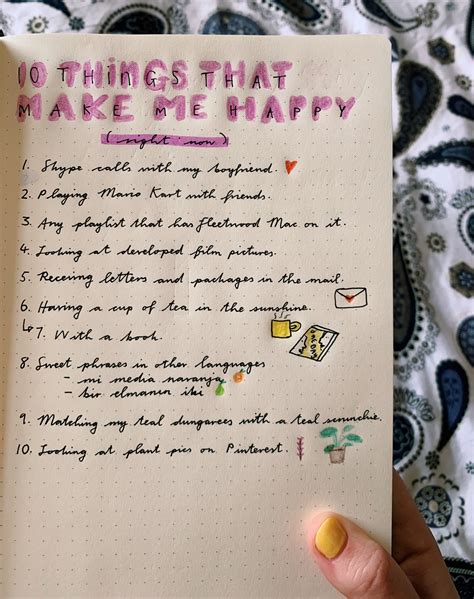 10 THINGS THAT
MAKE ME HAPPY
(right now)
1. Skype calls with my boyfriend.
2. Playing Mario Kart with friends.
3. Any playlist that has Fleetwood Mac on it.
4. Looking at developed film pictures.
5. Receiving letters and packages in the mail.
6. Having a cup of tea in the sunshine.
7. With a book.
8. Sweet phrases in other languages
- mi media naranja
- bir elmanın iki
9. Matching my teal dungarees with a teal scrunchie.
10. Looking at plant pics on Pinterest.